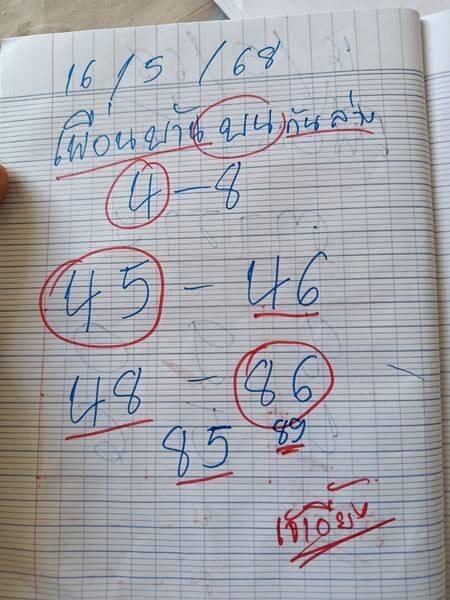 16 / 5 / 68
เพื่อนบ้าน บน กันล่าง
4 - 8
45 - 46
48 - 86
85 89